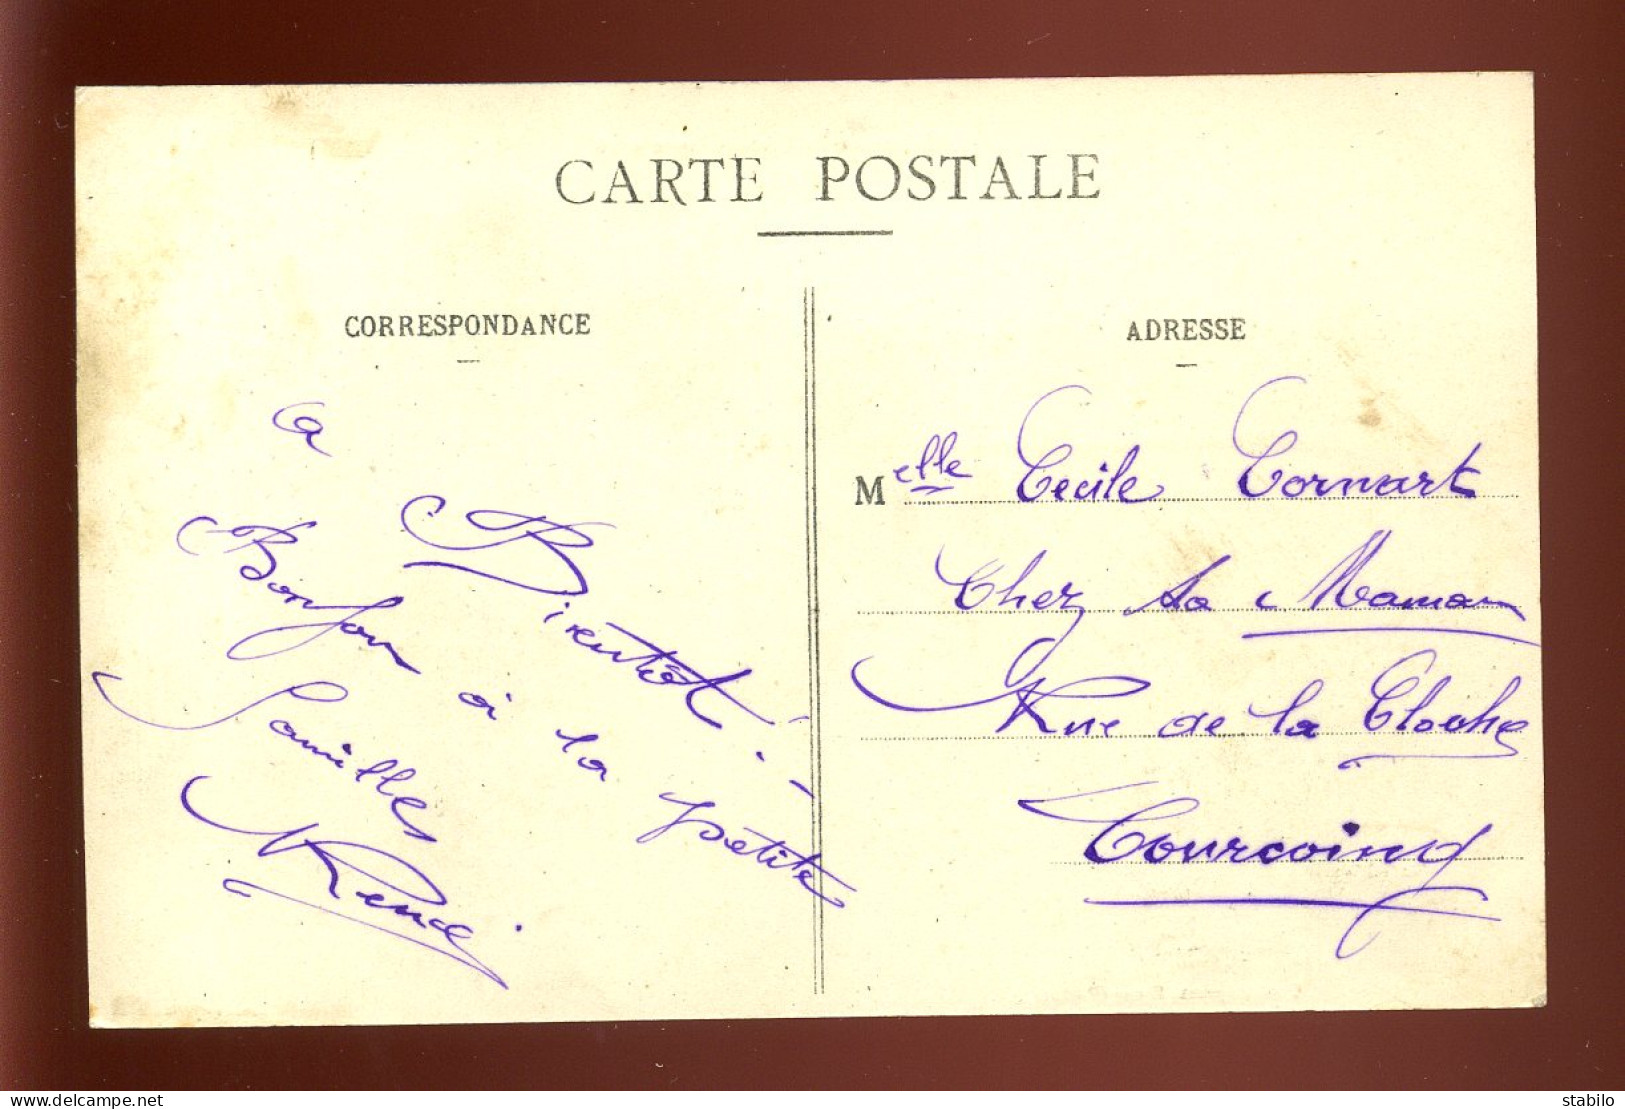 CARTE POSTALE
CORRESPONDANCE
a
Bientôt !
Bonjour à la petite
familles
René
ADRESSE
Melle Cécile Cornart
Chez sa Maman
Rue de la Cloche
Tourcoing
delcampe.net
stabilo